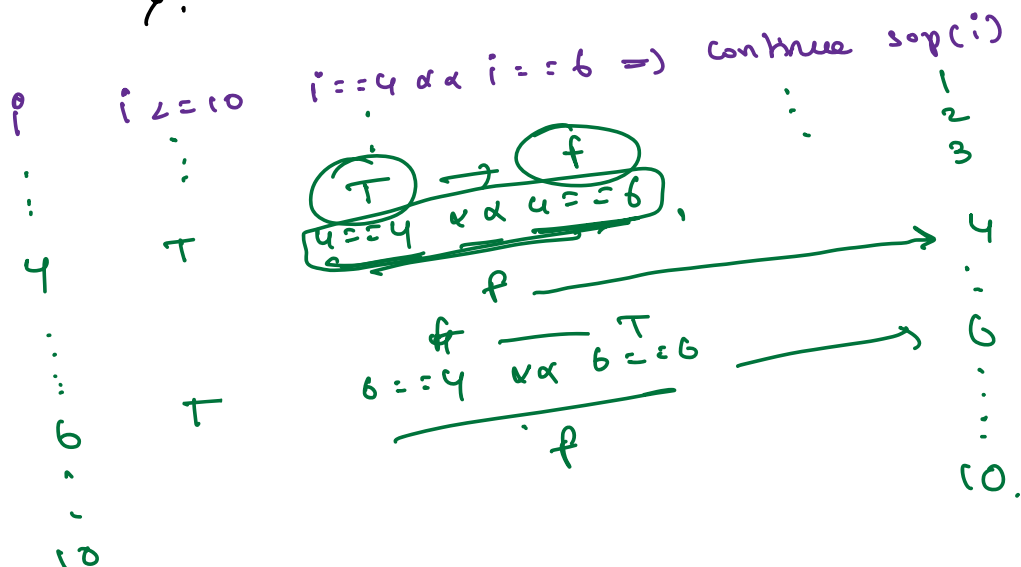 i i <= 10 i == 4 && i == 6 => continue sop(i)
1
2
3
T f
4 == 4 && 4 == 6
4 T 4
f
f T
6 == 4 && 6 == 6 6
6 T
f
10.
10